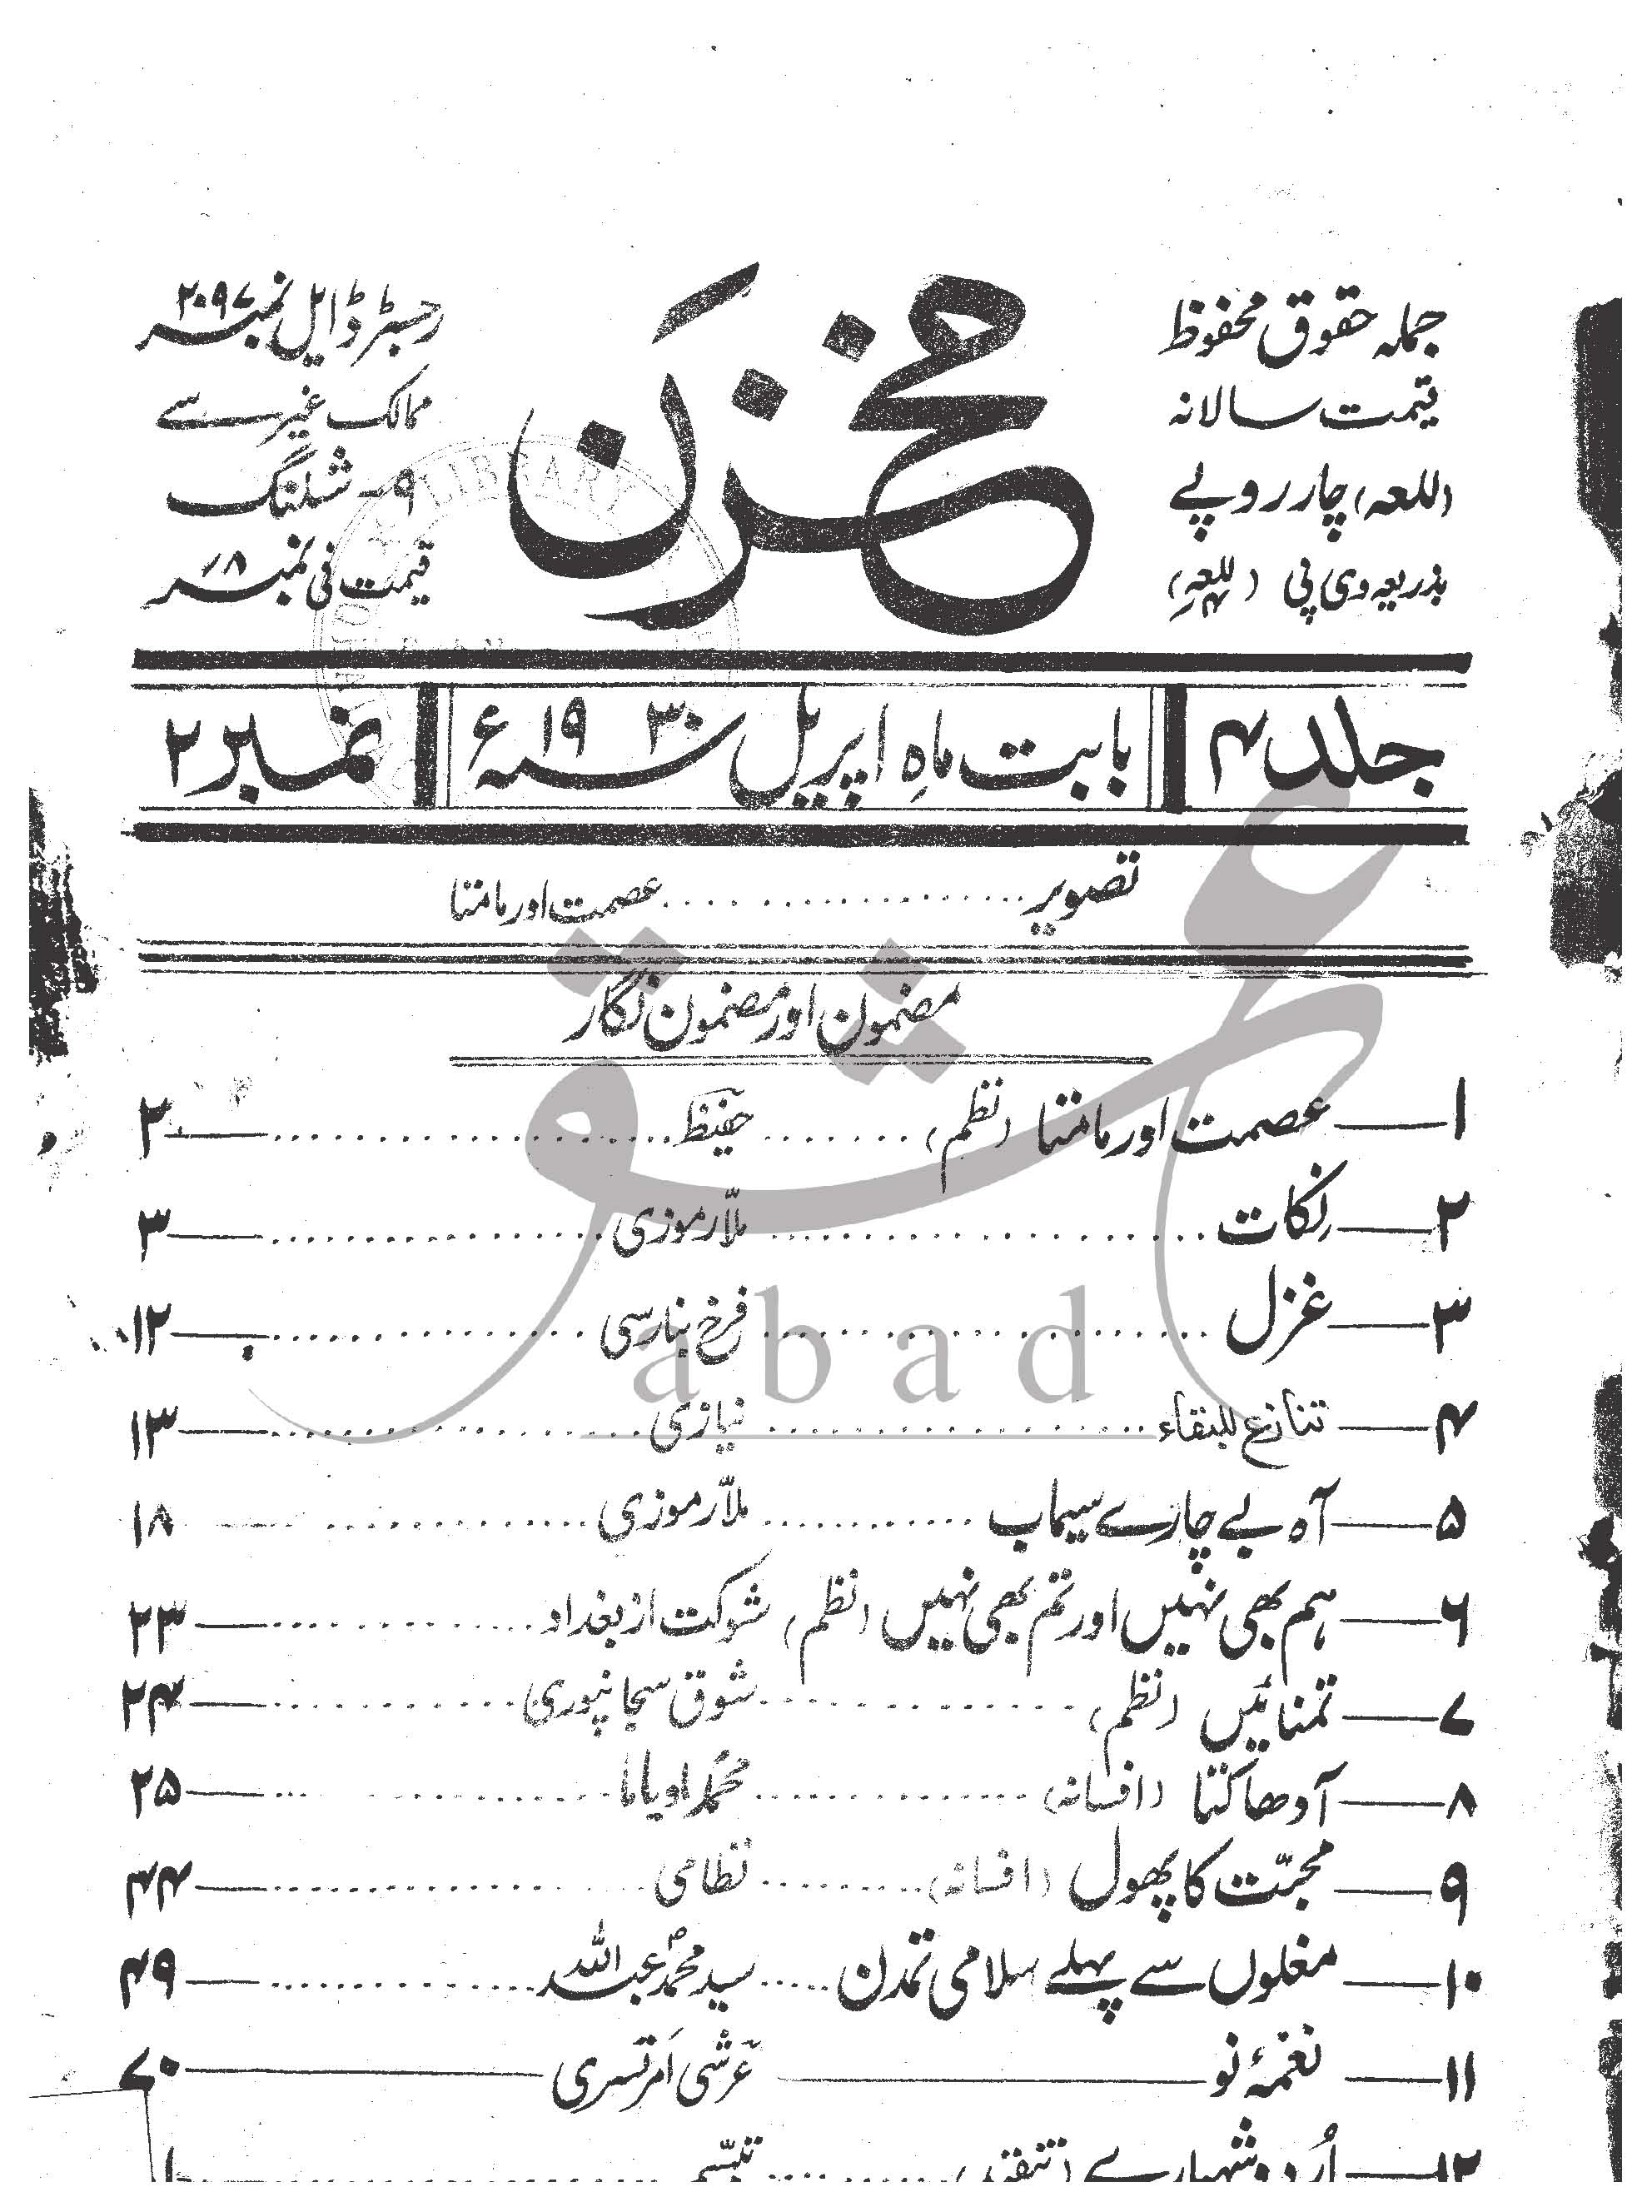 مخزن
جملہ حقوق محفوظ
قیمت سالانہ
(للعہ) چار روپے
بذریعہ وی پی (للعہ)
رجسٹرڈ ایل نمبر ۲۰۹۷
ممالک غیر سے
۹ شلنگ
قیمت فی نمبر ۸؍
جلد ۴
بابت ماہِ اپریل سنہ ۱۹۳۰ء
نمبر ۲
تصویر .......... عصمت اور مامتا
مضمون اور مضمون نگار
۱ — عصمت اور مامتا (نظم) ........ حفیظ ........ ۲
۲ — نکات ........ ملّا رموزی ........ ۳
۳ — غزل ........ فرخ بنارسی ........ ۱۲
۴ — تنازع للبقاء ........ نیازی ........ ۱۳
۵ — آہ بے چارے سیماب ........ ملّا رموزی ........ ۱۸
۶ — ہم بھی نہیں اور تم بھی نہیں (نظم) شوکت از بغداد ........ ۲۳
۷ — تمنائیں (نظم) ........ شوق سجانپوری ........ ۲۴
۸ — آدھا کتا (افسانہ) ........ محمد اویاما ........ ۲۵
۹ — محبّت کا پھول (افسانہ) ........ نظامی ........ ۴۴
۱۰ — مغلوں سے پہلے اسلامی تمدن ..... سید محمد عبداللہ ........ ۴۹
۱۱ — نغمۂ نو — عرشی امرتسری — ۷۰
۱۲ — اُردو شہپارے (تنقید) ........ تبسّم
عشق
abad
LIBRARY